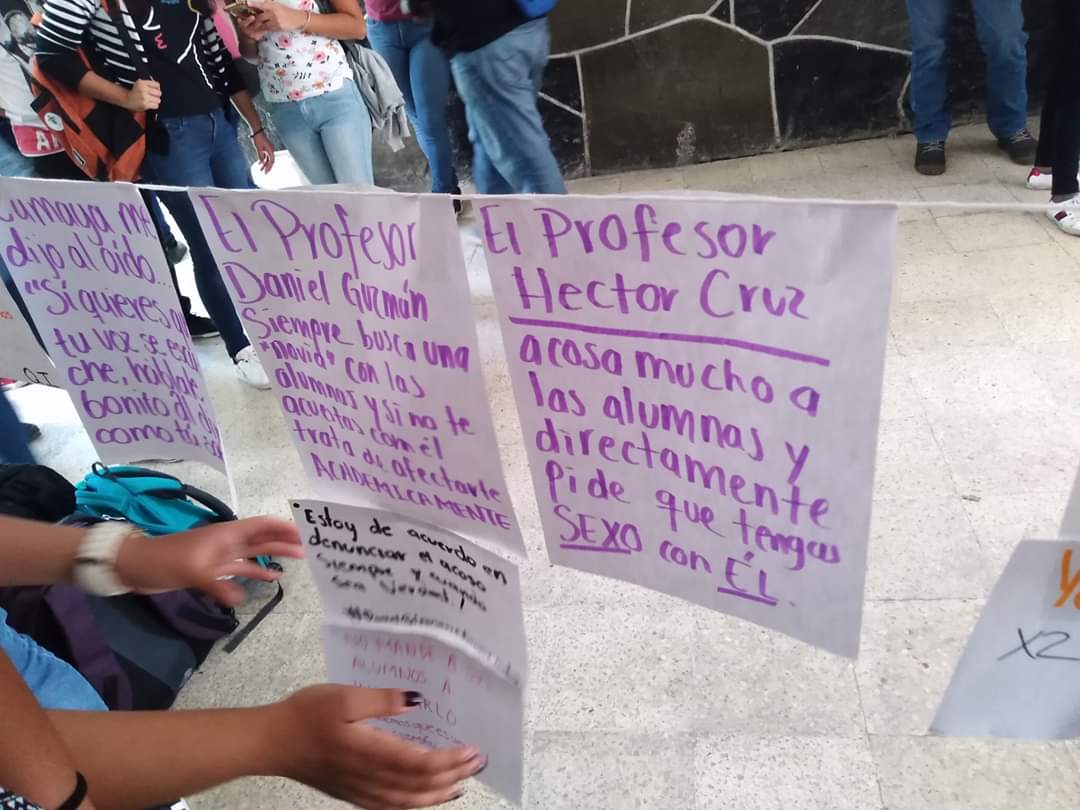 Zumaya me
dijo al oído...
"Si quieres
tu voz se escu
che, háblale
bonito al
como tú
El Profesor
Daniel Guzmán
Siempre busca una
"novia" con las
alumnas y si no te
acuestas con él
trata de afectarte
ACADEMICAMENTE
El Profesor
Hector Cruz
acosa mucho a
las alumnas y
directamente
Pide que tengas
SEXO con ÉL.
Estoy de acuerdo en
denunciar el acoso
siempre y cuando
sea verdad!
NO MANDE A SUS
ALUMNOS A
X2